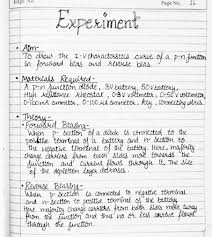 Expt. No.
Page No. 16
Experiment
• Aim-
To draw the I-V characteristics curve of a p-n junction
in forward bias and reverse bias.
• Materials Required-
A p-n junction diode, 3V battery, 50V battery,
High Resistance Rheostat, 0-3V voltmeter, 0-50V voltmeter,
0-100mA ammeter, 0-100μA ammeter, Key, connecting wires.
• Theory-
• Forward Biasing-
When p-section of a diode is connected to the
positive terminal of a battery and n-section to
the negative terminal of the battery. Here, majority
charge carriers from both sides move towards the
junction and current flows through it. The size
of the depletion layer decreases.
• Reverse Biasing-
When p-section is connected to negative terminal
and n-section to positive terminal of the battery.
Here majority charge carriers from both sides move away
from the junction and thus no or less current flows
through the junction.